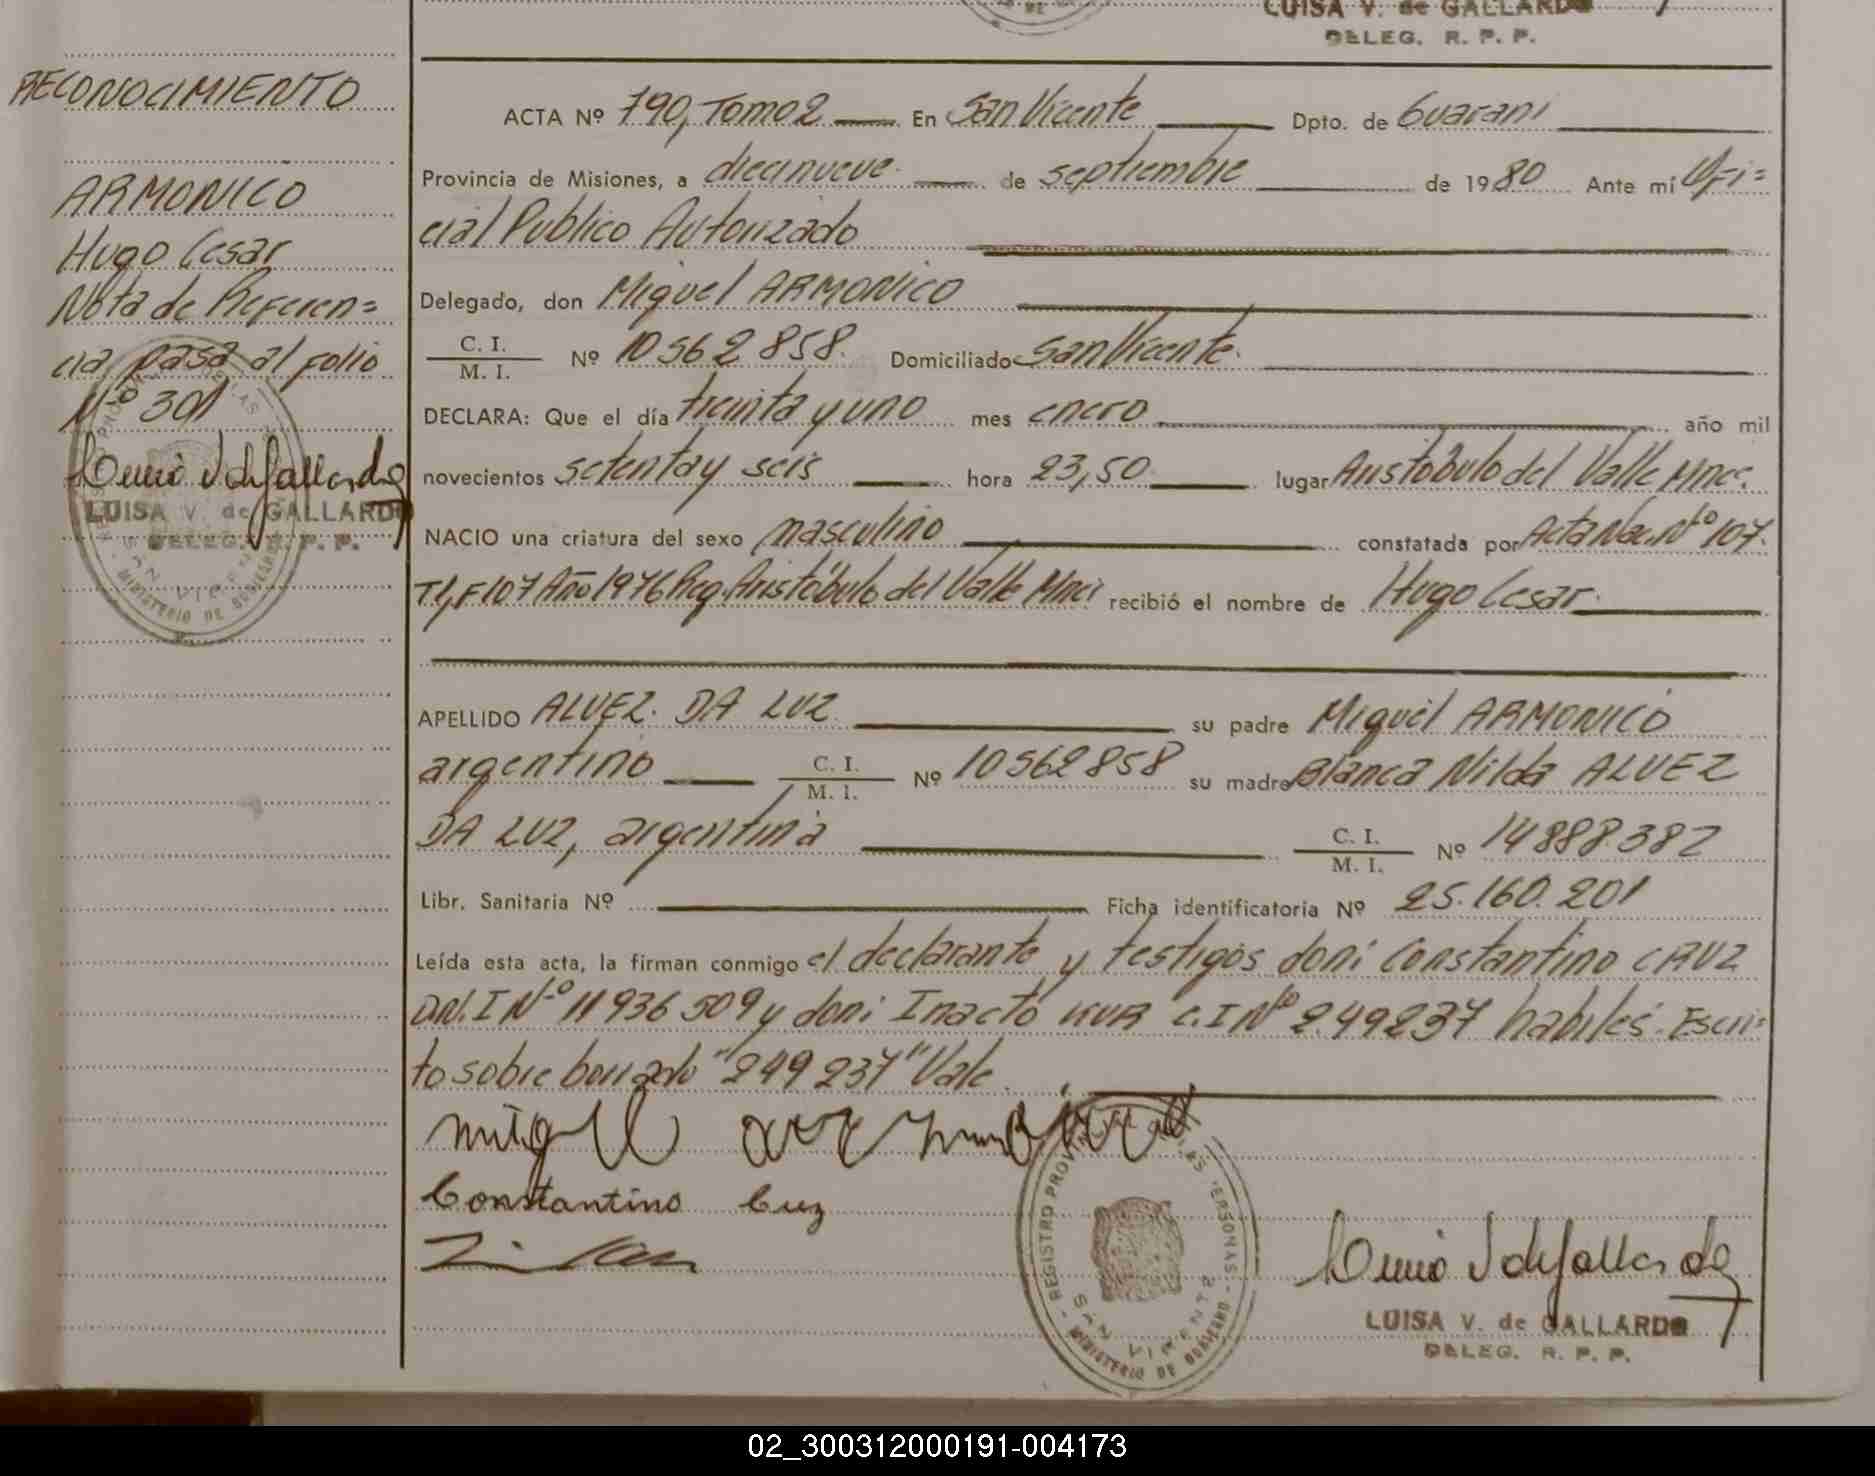 LUISA V. de GALLARDO
DELEG. R. P. P.
RECONOCIMIENTO
ARMONICO
Hugo Cesar
Nota de Referen=
cia pasa al folio
Nº 301
LUISA V. de GALLARDO
DELEG. R. P. P.
ACTA Nº 790, Tomo 2 En San Vicente Dpto. de Guarani
Provincia de Misiones, a diecinueve de septiembre de 1980 Ante mí Ofi=
cial Publico Autorizado
Delegado, don Miguel ARMONICO
C. I.
M. I. Nº 10562858. Domiciliado San Vicente.
DECLARA: Que el día treinta y uno mes enero año mil
novecientos setenta y seis hora 23,50 lugar Aristóbulo del Valle Mnes.
NACIO una criatura del sexo masculino constatada por Acta Nac. Nº 107.
T1, F107 Año 1976 Reg. Aristóbulo del Valle Mnes recibió el nombre de Hugo Cesar
APELLIDO ALVEZ DA LUZ su padre Miguel ARMONICO
argentino C. I.
M. I. Nº 10562858 su madre Blanca Nilda ALVEZ
DA LUZ, argentina C. I.
M. I. Nº 14888.382
Libr. Sanitaria Nº Ficha identificatoria Nº 25.160.201
Leída esta acta, la firman conmigo el declarante y testigos don: Constantino CRUZ
D.N.I Nº 11936509 y don: Inacto C.I Nº 249237 habiles. Escri=
to sobre borrado "249237" Vale.
Constantino Cuz
REGISTRO PROVINCIAL DE LAS PERSONAS
SAN VICENTE
MINISTERIO DE GOBIERNO
LUISA V. de GALLARDO
DELEG. R. P. P.
02_300312000191-004173